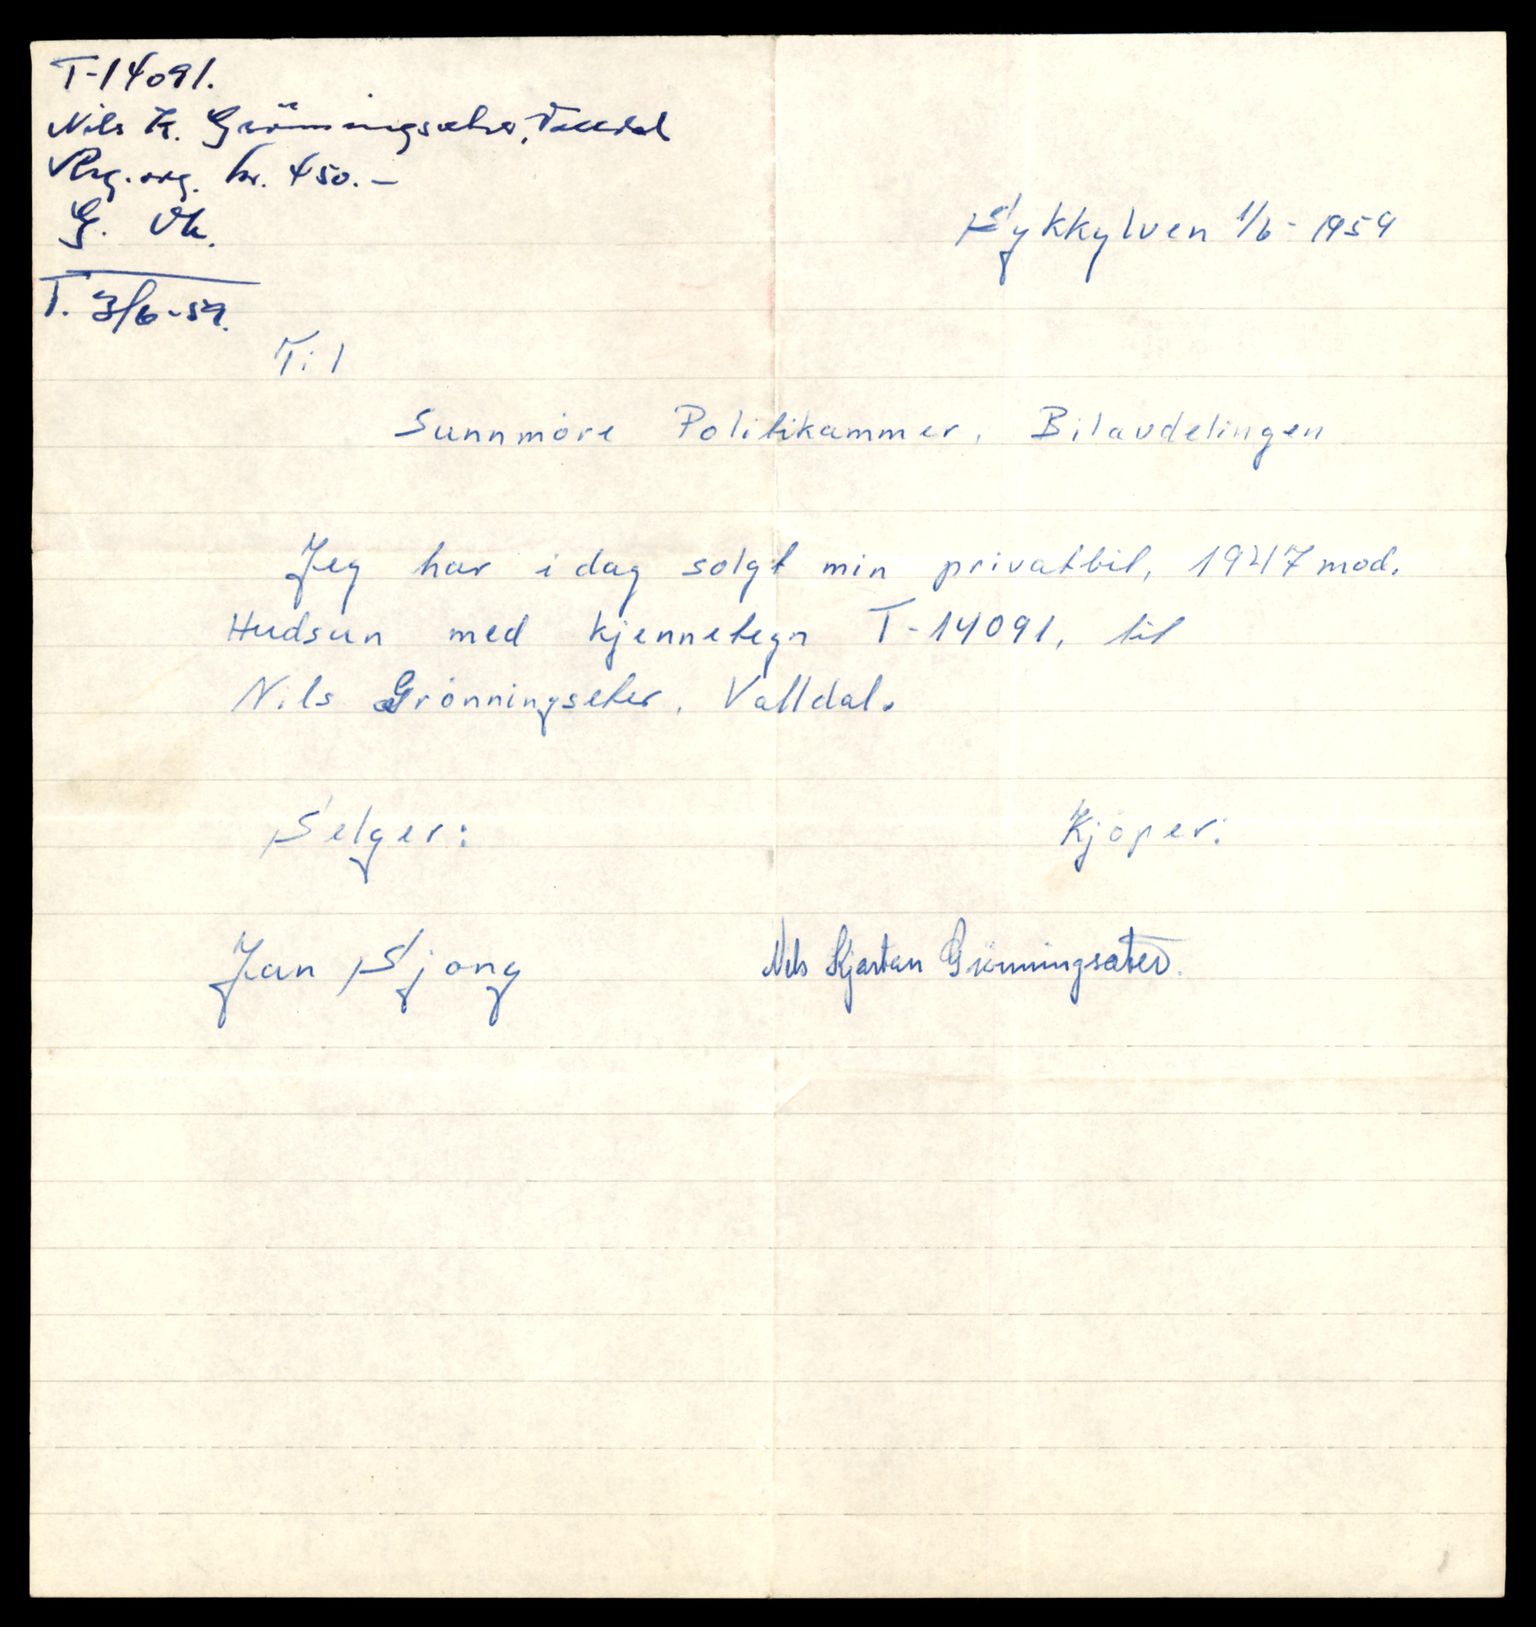 T-14091.
Nils K. Grönningsæter, Valldal
Rg. avg. kr. 450.-
G. Vk.
T. 3/6-59.
Sykkylven 1/6-1959
Til
Sunnmöre Politikammer, Bilavdelingen
Jeg har idag solgt min privatbil, 1947 mod.
Hudson med kjennetegn T-14091, til
Nils Grönningseter, Valldal.
Selger: Kjöper:
Jan Sjong Nils Kjartan Grönningsæter.